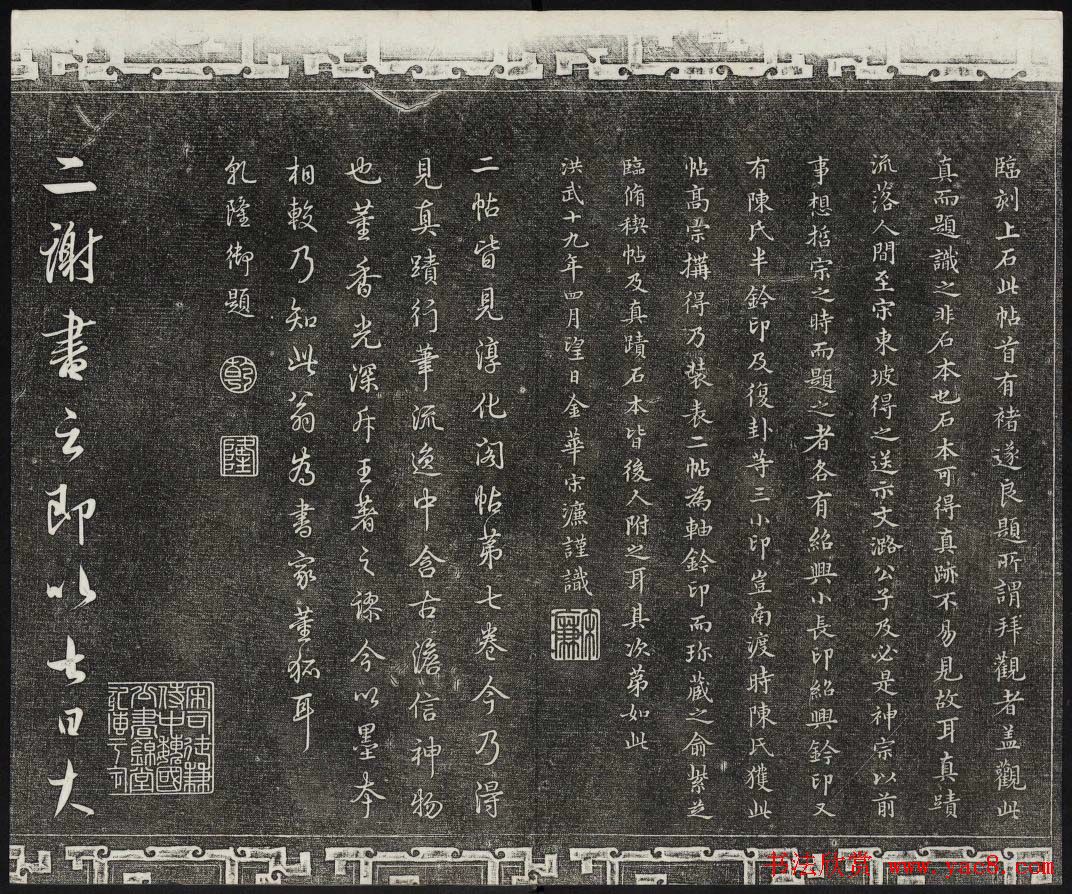 臨刻上石此帖首有褚遂良題所謂拜觀者盖觀此
真而題識之非石本也石本可得真跡不易見故耳真蹟
流落人間至宋東坡得之送示文潞公子及必是神宗以前
事想哲宗之時而題之者各有紹興小長印紹興鈐印又
有陳氏半鈐印及復卦等三小印豈南渡時陳氏獲此
帖髙宗搆得乃裝表二帖為軸鈐印而珎藏之俞紫芝
臨脩稧帖及真蹟石本皆後人附之耳具次第如此
洪武十九年四月望日金華宋濂謹識
宋濂
二帖皆見淳化阁帖第七卷今乃得
見真蹟行筆流逸中含古澹信神物
也董香光深斥王著之謬今以墨本
相較乃知此翁為書家董狐耳
乹隆御題
乾
隆
二謝書云即以七日大
宋司徒兼
侍中魏國
公書錦堂
書法欣赏 www.yac8.com